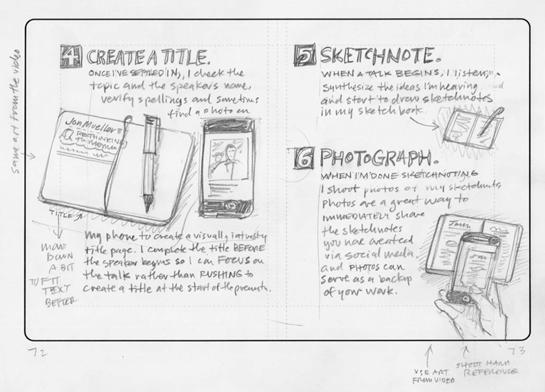 4 CREATE A TITLE.
ONCE I'VE SETTLED IN, I check the
topic and the speaker's name,
verify spellings and sometimes
find a photo on
Jon Mueller's
TITLE
my phone to create a visually
title page. I complete the title BEFORE
the speaker begins so I can FOCUS on
the talk rather than RUSHING to
create a title at the start of the
same art from the video
MOVE
DOWN
A BIT
TO FIT
TEXT
BETTER
72
5 SKETCHNOTE.
WHEN A TALK BEGINS, I listen,
Synthesize the ideas I'm hearing
and start to draw sketchnotes
in my sketchbook.
6 PHOTOGRAPH.
WHEN I'M DONE SKETCHNOTING
I shoot photos of my sketchnotes
Photos are a great way to
IMMEDIATELY share
the sketchnotes
you have created
via social media,
and PHOTOS can
serve as a backup
of your work.
73
USE ART
FROM VIDEO
SHOOT HAND
REFERENCE